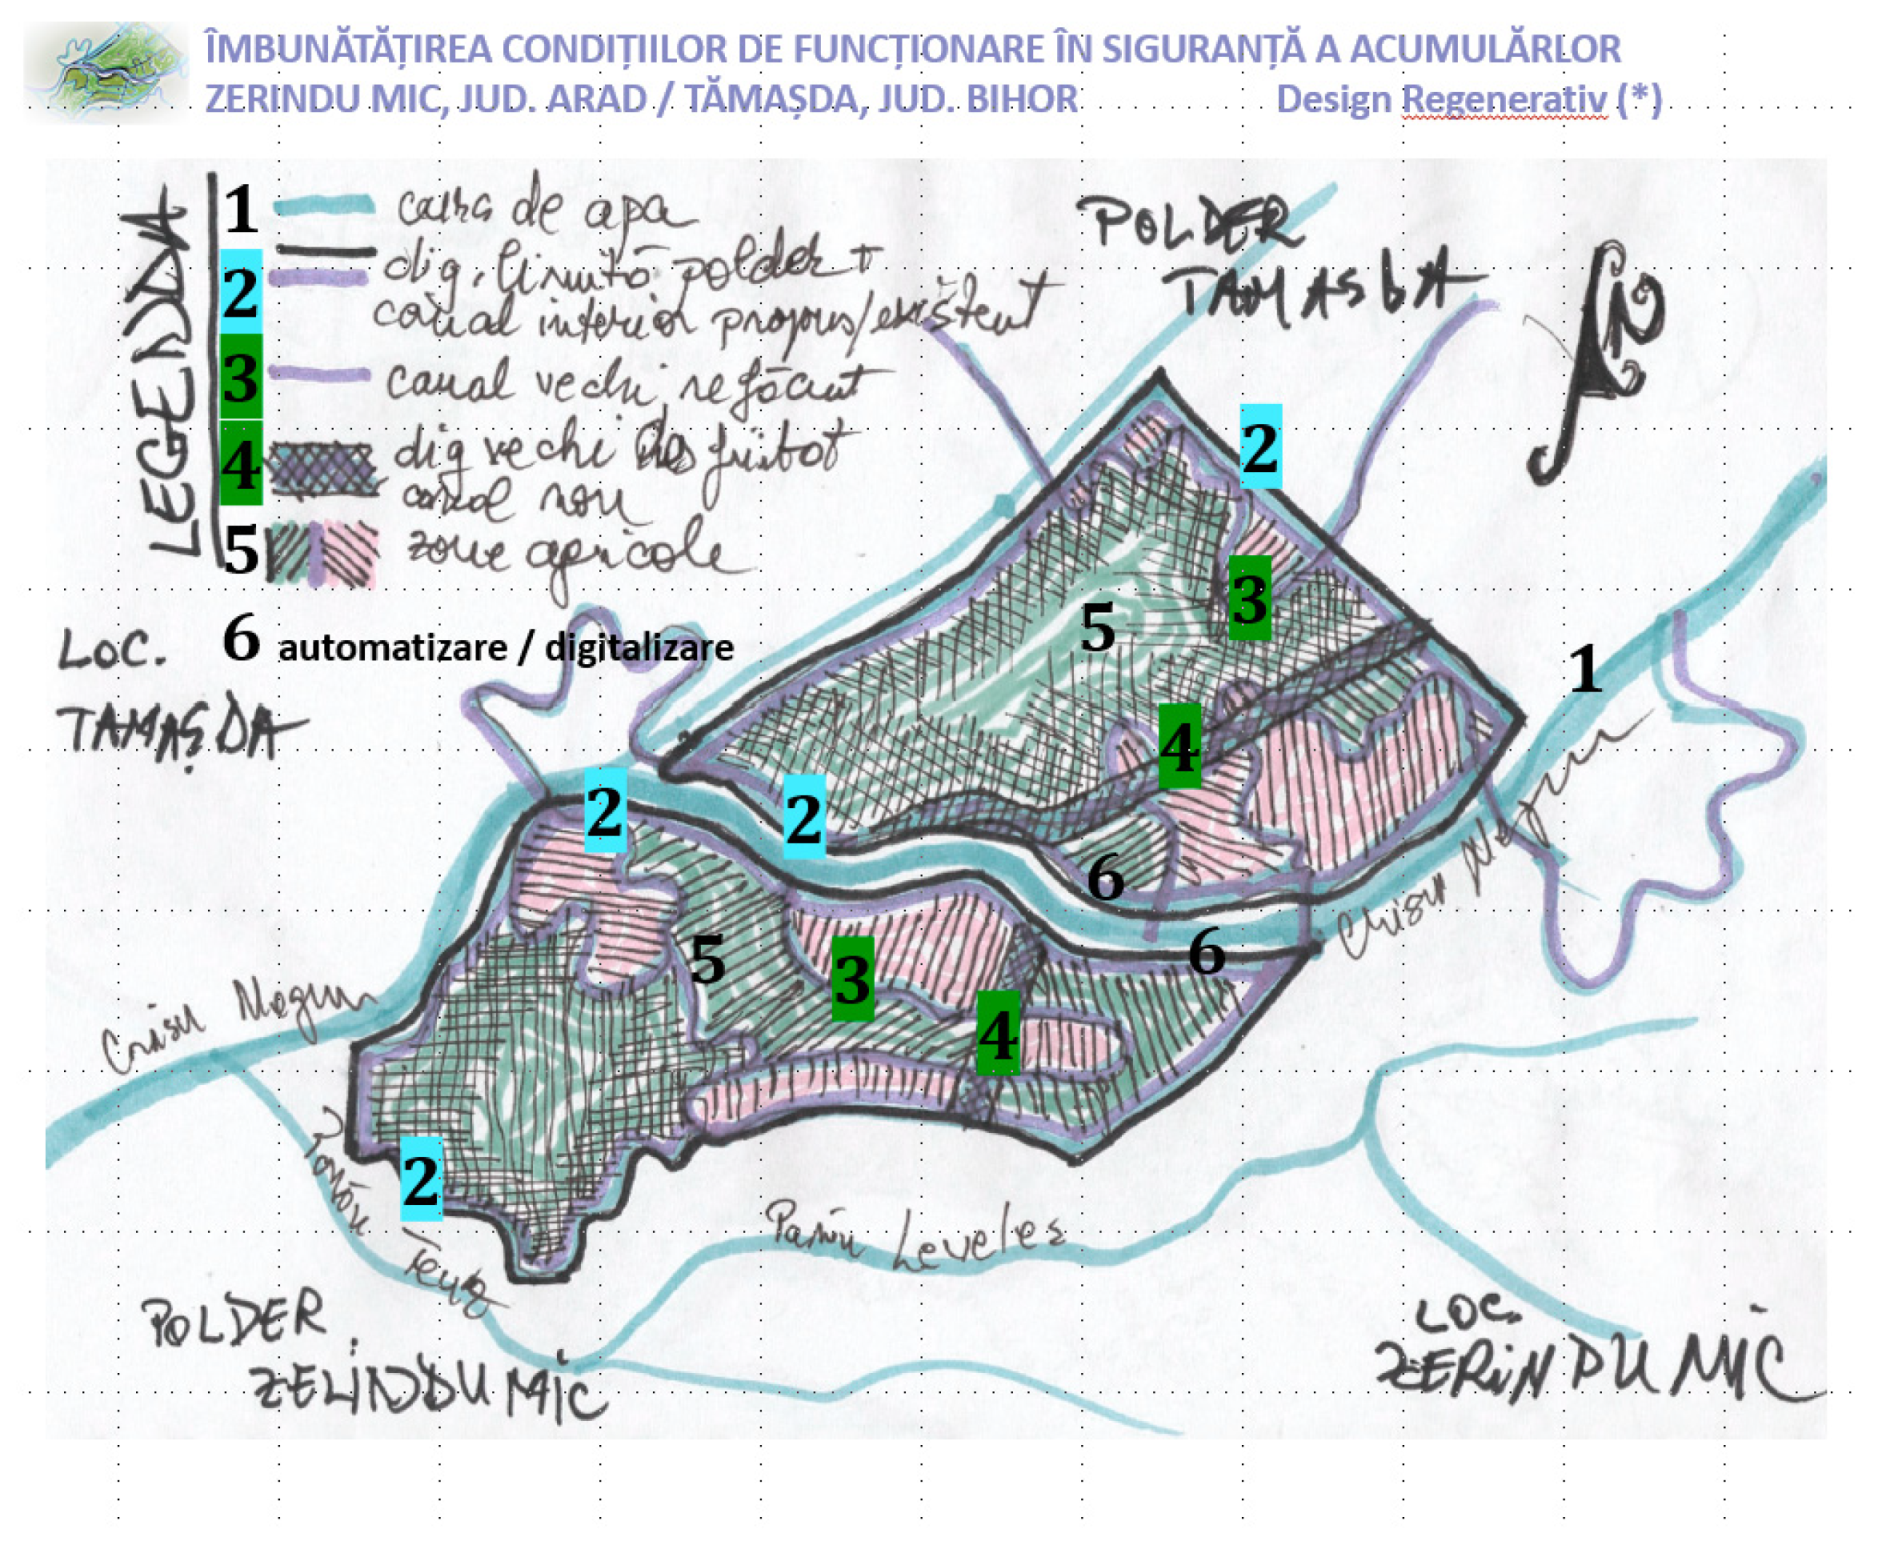 ÎMBUNĂTĂȚIREA CONDIȚIILOR DE FUNCȚIONARE ÎN SIGURANȚĂ A ACUMULĂRLOR
ZERINDU MIC, JUD. ARAD / TĂMAȘDA, JUD. BIHOR Design Regenerativ (*)
LEGENDA
1 curs de apa
2 dig, limită polder +
canal interior propus/existent
3 canal vechi refăcut
4 dig vechi desființat
canal nou
5 zone agricole
6 automatizare / digitalizare
POLDER
TAMASDA
N
LOC.
TAMAȘDA
2
3
5
1
4
2
2
6
Crisu Negru
6
5
3
4
Crisu Negru
2
Teuz
Pârîu Leveles
POLDER
ZELINDU MIC
LOC.
ZERINDU MIC